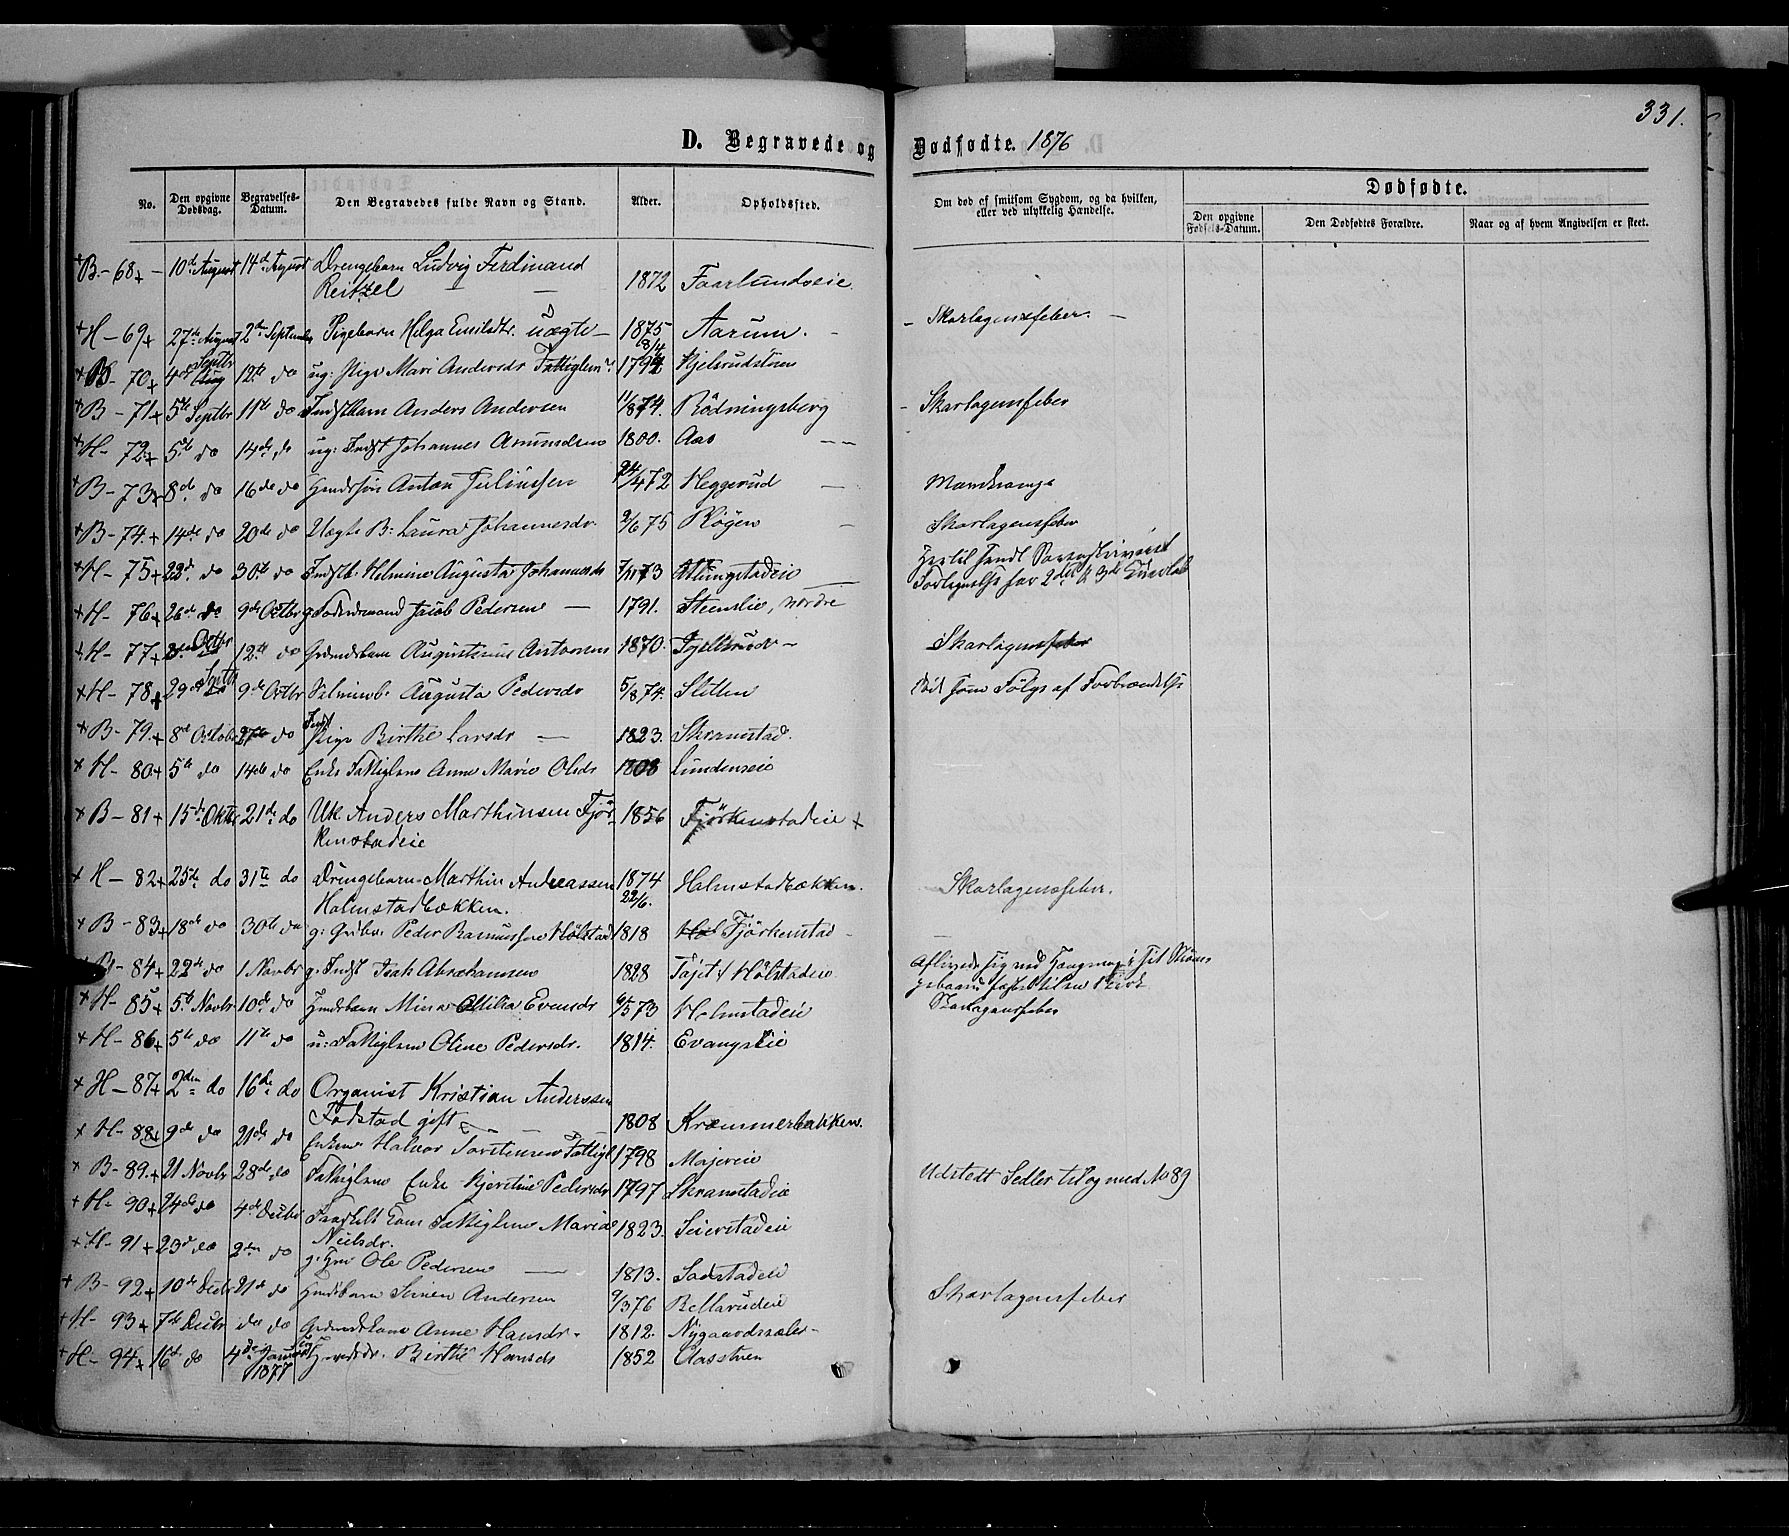 331.
D. Begravede og Dødfødte. 1876
No. Den opgivne Dødsdag. Begravelses-Datum. Den Begravedes fulde Navn og Stand. Alder. Opholdssted. Om død af smitsom Sygdom, og da hvilken, eller ved ulykkelig Hændelse. Dødfødte.
Den opgivne Fødsels-Datum. Den Dødfødtes Forældre. Naar og af hvem Angivelsen er skeet.
+ B - 68 + 10de August 14de August Drengebarn Ludvig Ferdinand
Reitzel 1872 Faarlundeie.
+ H - 69 + 27de August 2den September Pigebarn Helga Emilsdtr. uægte 1875 Aarum. - Skarlagensfeber. -
8/4
+ B - 70 + 4de Septbr 12te do ug: Pige Mari Andersdr Fattiglem 1794 Kjelsrudstuen
+ B - 71 + 5te Septbr 11te do Indstbarn Anders Andersen 11/8 74. Rödningsberg - Skarlagensfeber
+ H - 72 + 5te do 14de do ug: Indst Johannes Amundsen 1800. Aas
+ B - 73 + 8de do 16de do Anton Juliussen 24/4 72 Heggerud
+ B - 74 + 14de do 20de do Uægte B: Laura Johannesdr. 2/6 75 Rögen Skarlagensfeber
+ H - 75 + 22de do 30te do Indstb. Helmine Augusta Johannesdr 7/11 73
+ H - 76 + 26de do 9de Octbr g. Föderaadmand Jacob Pedersen 1791. Steenslie, nordre
+ H - 77 + Octbr 12te do Augustinus Antonsen 1870. Skarlagensfeber
+ H - 78 + 29de Septb 9de Octbr Augusta Pedersdr 5/8 74. Sletten som Følge af Forbrændelse
+ B - 79 + 8de Octobr 27de do Indst Pige Birthe Larsdr 1823. Skramstad.
+ H - 80 + 5te do 14de do Enke Fattiglem Anne Marie Olsdr 1808 Lundenseie
+ B - 81 + 15de Oktbr 21de do Uk Anders Marthinsen Fjör-
kenstadeie 1856 Fjörkenstadeie +
+ H - 82 + 25de do 31te do Drengebarn Marthin Andreassen 1874 Holmstadbækken. Skarlagensfeber.
Holmstadbækken. 22/6.
+ B - 83 + 18de do 30te do g: Peder Rasmussen Hölstad 1818 Fjörkenstad -
+ B - 84 + 22de do 1 Novbr g. Indst Isak Abrahamsen 1828 Tajet / Hölstadeie
+ H - 85 + 5te Novbr 10de do Mina Ottilia Evensdr 9/5 73 Holmstadeie Skarlagensfeber
+ H - 86 + 5te do 11te do u: Fattiglem Oline Pedersdr. 1814. Evangseie
+ H - 87 + 2den do 16de do Organist Kristian Anderssen
Fodstad gift 1808 Kræmmerbakken.
+ H - 88 + 9de do 21de do Enkem Halvor Torstensen Fattigl 1798 Majereie
+ B - 89 + 21 Novbr 28de do Fattiglem Enke Kjerstine Pedersdr 1797 Skramstadeie Udstedt Sedler til og med No 89
+ H - 90 + 24de do 4de Decbr Fraskilt Kone Fattiglem Marie
Nielsdr. 1823. Seierstadeie
+ H - 91 + 23de do 2den do g: Ole Pedersen 1813. Sodstadeie
+ B - 92 + 10de Decbr 21de do Simen Andersen 9/3 76 Bellerudeie Skarlagensfeber
+ H - 93 + 7de Decbr do do Anne Hansdr. 1812. Nygaardssæter
+ H - 94 + 16de do 4de Januar Birthe Hansdr 1852 Aasstuen
1877